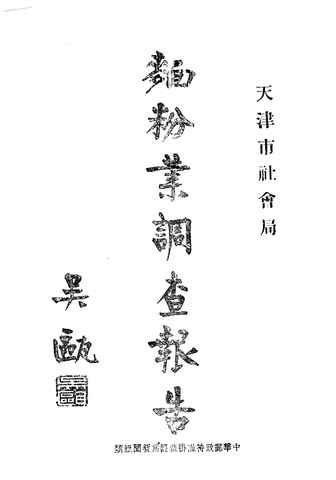 天津市社會局
麵粉業調查報告
吳甌
中華郵政特准掛號認爲新聞紙類